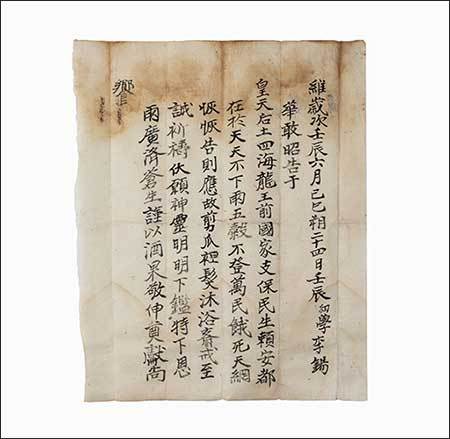 維歲次壬辰六月己巳朔二十四日壬辰幼學李錫
華敢昭告于
皇天后土四海龍王前國家支保民生賴安都
在於天天不下雨五穀不登萬民餓死天網
恢恢告則應故剪爪裡髮沐浴齋戒至
誠祈禱伏願神靈明明下鑑特下恩
雨廣濟蒼生謹以酒果敬伸奠獻尙
饗